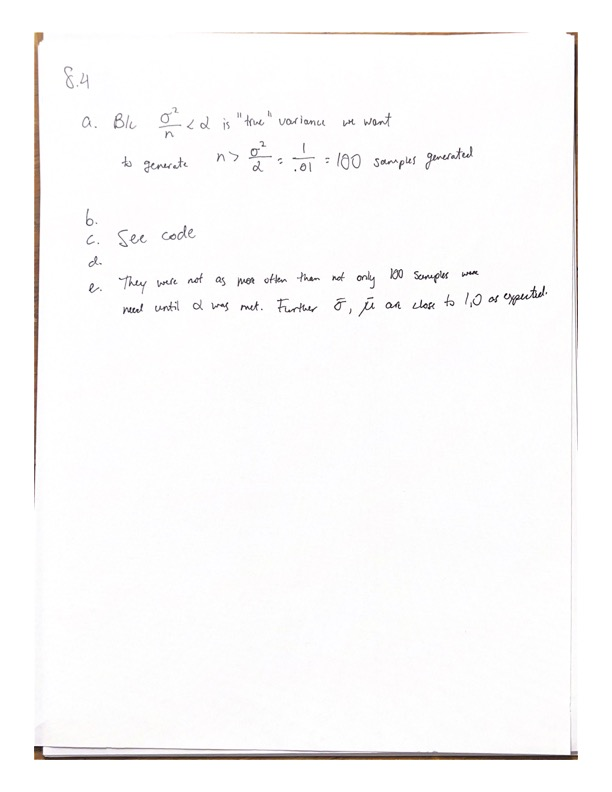 8.4
a. B/c σ²/n < d is "true" variance we want
to generate n > σ²/d = 1/.01 = 100 samples generated
b.
c. See code
d.
e. They were not as more often than not only 100 samples were
need until d was met. Further σ̄, μ̄ are close to 1,0 as expected.